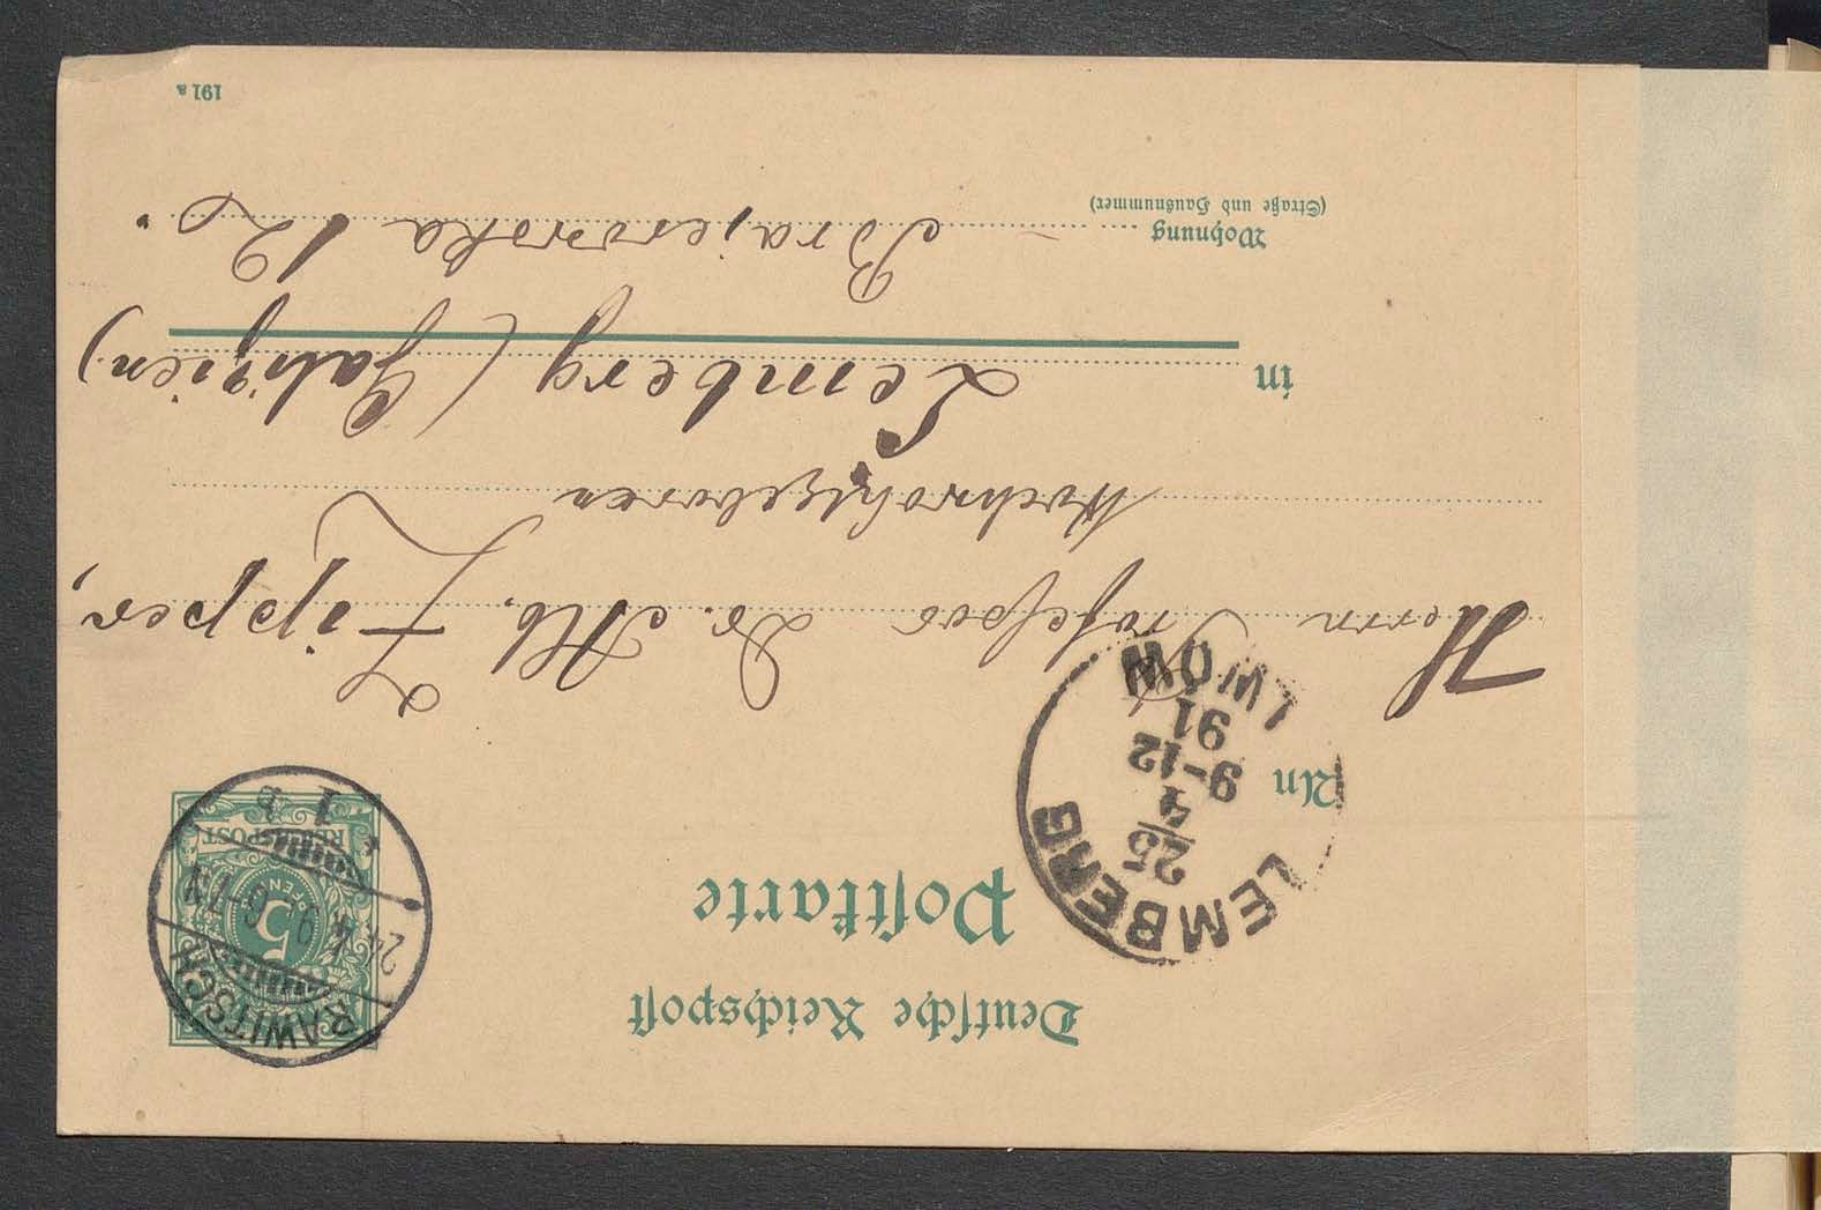 Deutsche Reichspost
Postkarte
RAWITSCH
24 4 91 6-7N
1 b
5
PFENNIG
REICHSPOST
LEMBERG
25/4
9-12
91
LWÓW
An
Herrn Professor Dr. Alb. Zipper,
Hochwohlgeboren
in Lemberg (Galizien)
Wohnung
(Straße und Hausnummer)
Brajerowska 12.
191 a